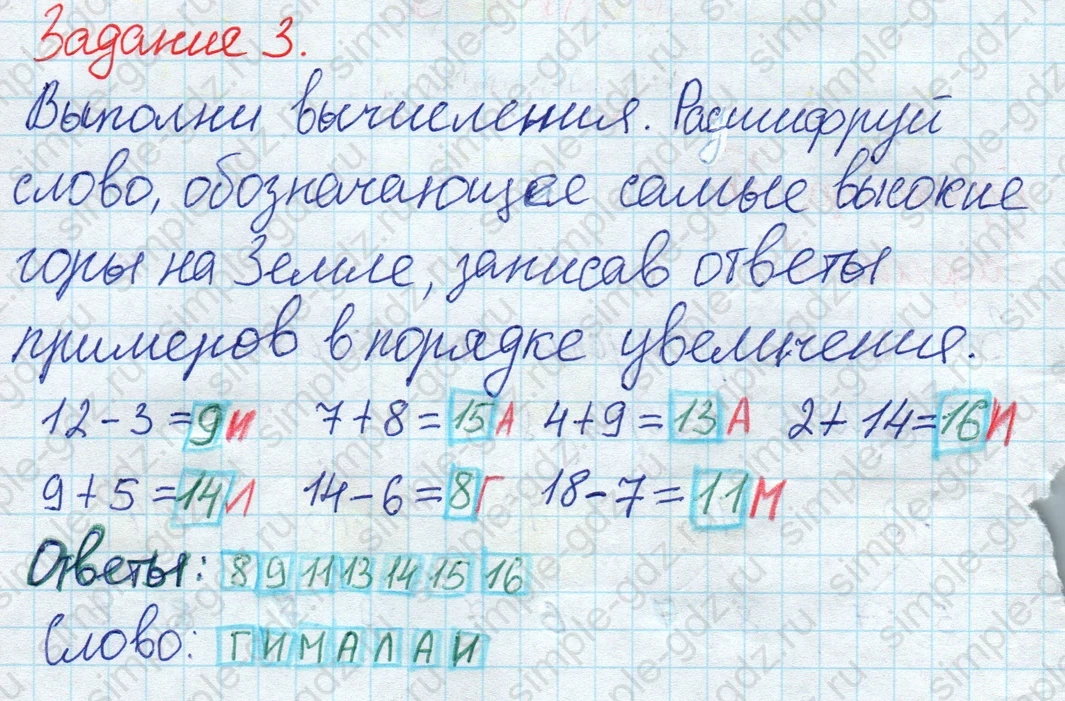 Задание 3.
Выполни вычисления. Расшифруй
слово, обозначающее самые высокие
горы на Земле, записав ответы
примеров в порядке увеличения.
12 - 3 = 9 И 7 + 8 = 15 А 4 + 9 = 13 А 2 + 14 = 16 И
9 + 5 = 14 Л 14 - 6 = 8 Г 18 - 7 = 11 М
Ответы: 8 9 11 13 14 15 16
Слово: Г И М А Л А И
simple-gdz.ru